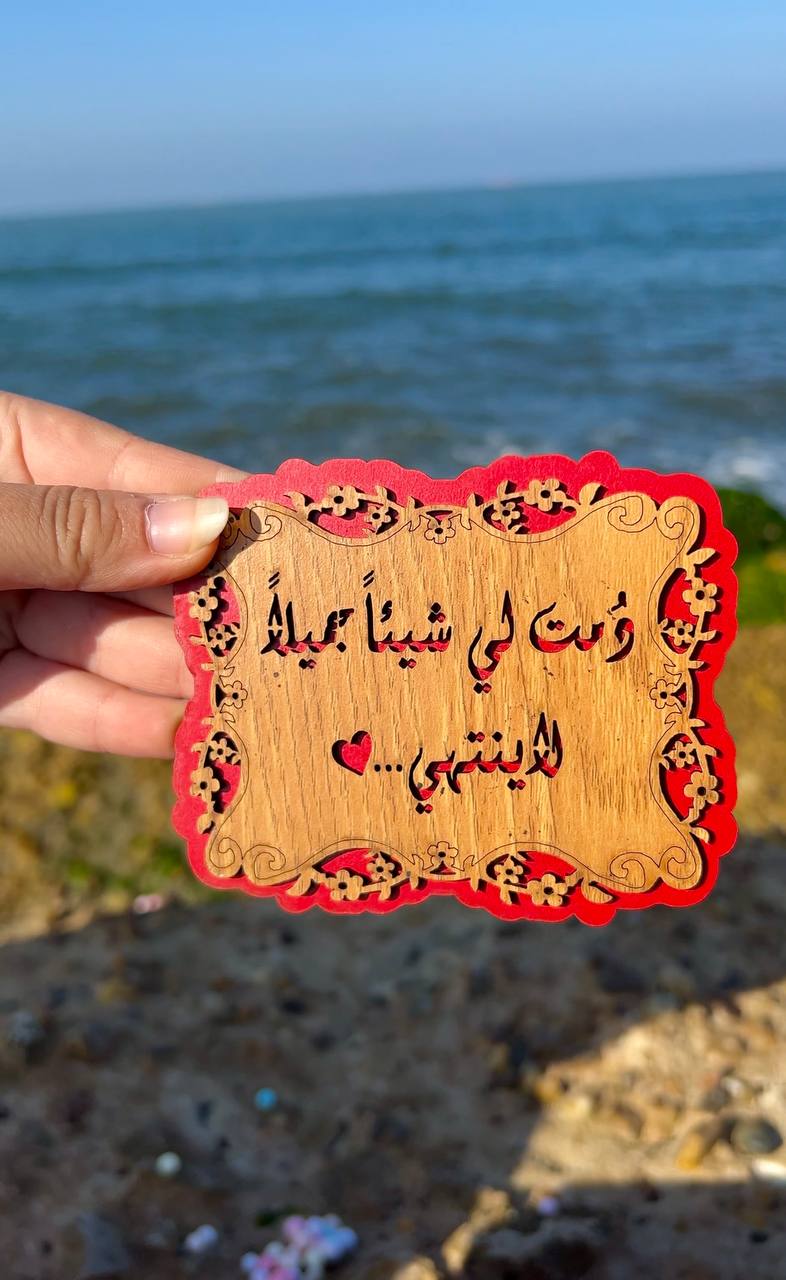 دُمت لي شيئاً جميلاً
لاينتهي...♥